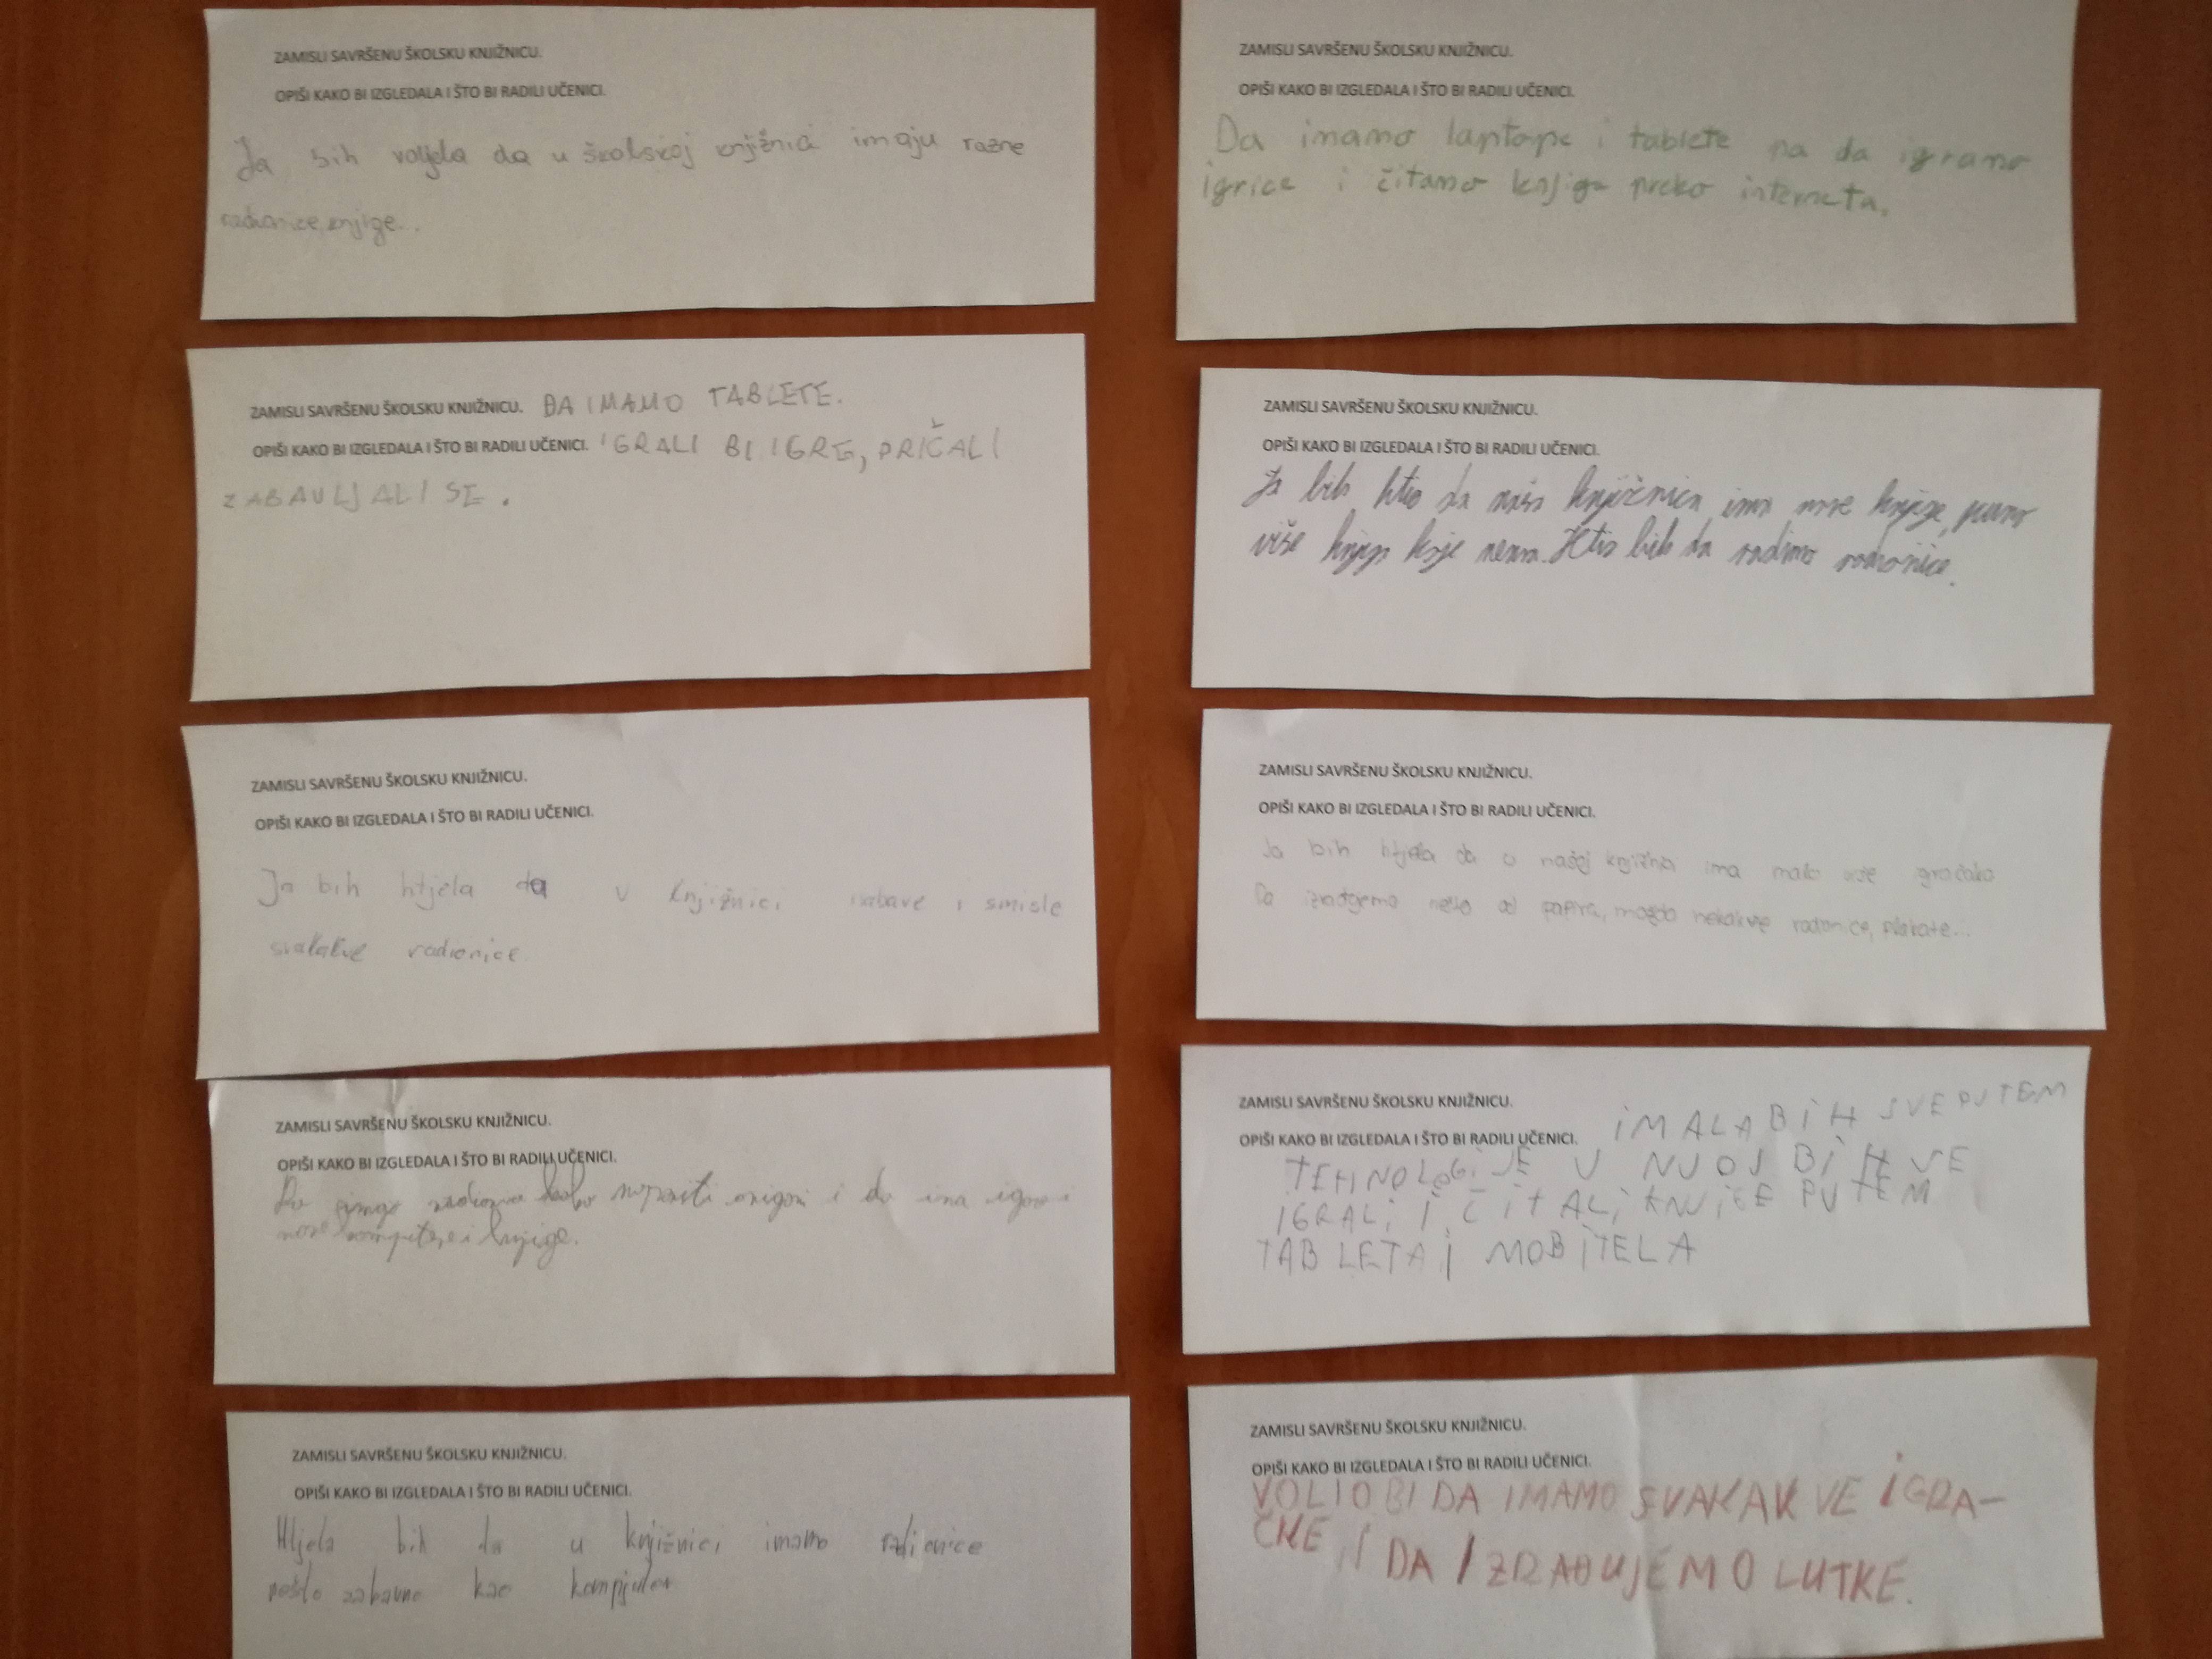 ZAMISLI SAVRŠENU ŠKOLSKU KNJIŽNICU.
OPIŠI KAKO BI IZGLEDALA I ŠTO BI RADILI UČENICI.
Ja bih voljela da u školskoj knjižnici imaju razne
radionice, knjige...
ZAMISLI SAVRŠENU ŠKOLSKU KNJIŽNICU. DA IMAMO TABLETE.
OPIŠI KAKO BI IZGLEDALA I ŠTO BI RADILI UČENICI. IGRALI BI IGRE, PRIČALI
ZABAVLJALI SE.
ZAMISLI SAVRŠENU ŠKOLSKU KNJIŽNICU.
OPIŠI KAKO BI IZGLEDALA I ŠTO BI RADILI UČENICI.
Ja bih htjela da u knjižnici nabave i smisle
svakakve radionice
ZAMISLI SAVRŠENU ŠKOLSKU KNJIŽNICU.
OPIŠI KAKO BI IZGLEDALA I ŠTO BI RADILI UČENICI.
Da napraviti origami i da ima
nove kompjutere i knjige.
ZAMISLI SAVRŠENU ŠKOLSKU KNJIŽNICU.
OPIŠI KAKO BI IZGLEDALA I ŠTO BI RADILI UČENICI.
Htjela bih da u knjižnici imamo radionice
nešto zabavno kao kompjuter
ZAMISLI SAVRŠENU ŠKOLSKU KNJIŽNICU.
OPIŠI KAKO BI IZGLEDALA I ŠTO BI RADILI UČENICI.
Da imamo laptope i tablete pa da igramo
igrice i čitamo knjige preko interneta.
ZAMISLI SAVRŠENU ŠKOLSKU KNJIŽNICU.
OPIŠI KAKO BI IZGLEDALA I ŠTO BI RADILI UČENICI.
Ja bih htio da naša knjižnica ima nove knjige, puno
više knjiga koje nema. Htio bih da radimo radionice.
ZAMISLI SAVRŠENU ŠKOLSKU KNJIŽNICU.
OPIŠI KAKO BI IZGLEDALA I ŠTO BI RADILI UČENICI.
Ja bih htjela da u našoj knjižnici ima malo više igračaka
Da nešto od papira, možda nekakve radionice, plakate...
ZAMISLI SAVRŠENU ŠKOLSKU KNJIŽNICU.
OPIŠI KAKO BI IZGLEDALA I ŠTO BI RADILI UČENICI. IMALA BIH SVE PUTEM
TEHNOLOGIJE U NJOJ BIH SE
IGRALI I ČITALI KNJIGE PUTEM
TABLETA I MOBITELA
ZAMISLI SAVRŠENU ŠKOLSKU KNJIŽNICU.
OPIŠI KAKO BI IZGLEDALA I ŠTO BI RADILI UČENICI.
VOLIO BI DA IMAMO SVAKAKVE IGRA-
ČKE I DA IZRAĐUJEMO LUTKE.